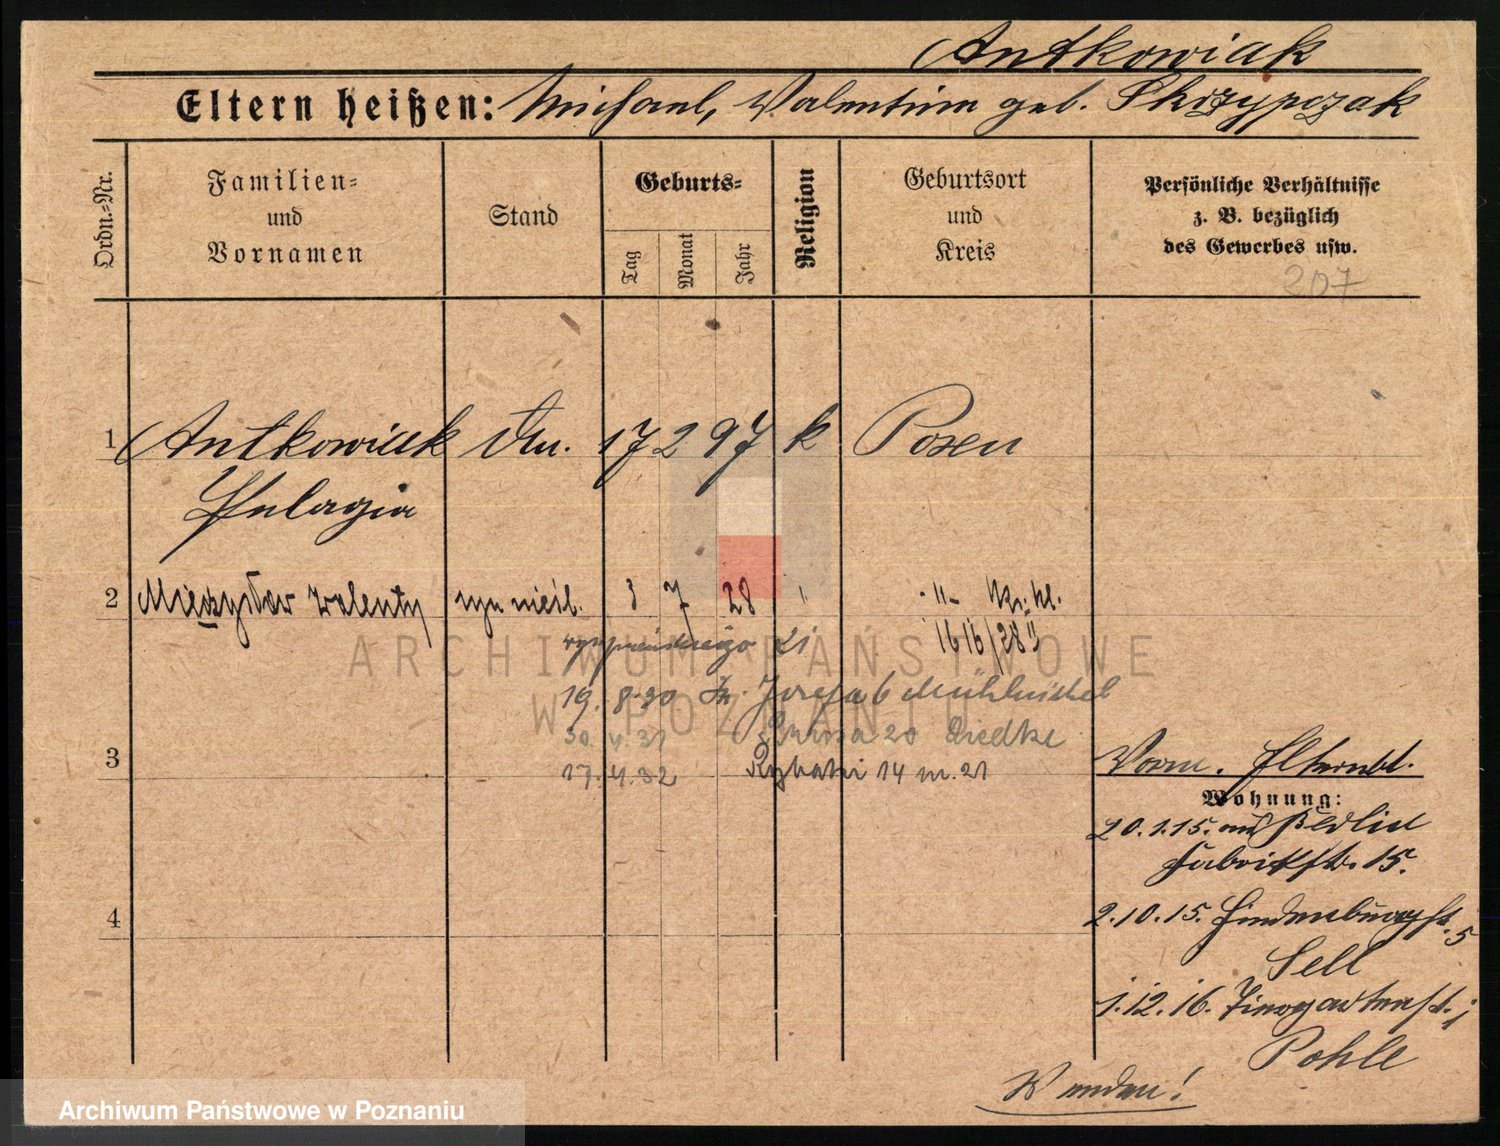 Antkowiak
Eltern heißen: Michael, Valentina geb. Skrzypczak
Ordn.-Nr.
Familien-
und
Vornamen
Stand
Geburts-
Tag
Monat
Jahr
Religion
Geburtsort
und
Kreis
Persönliche Verhältnisse
z. B. bezüglich
des Gewerbes usw.
207
1 Antkowiak 17 2 97 k Posen
Pelagia
2 Mieczysław Walenty syn nieśl. 3 7 28 " -"-
1616/28
19. 8.30 6
30. 4. 31 20 Liedtke
3 17. 4. 32 Rybaki 14 m. 21
4
Wohnung:
20.1.15. aus Berlin
Fabrikstr. 15.
2.10.15. Hindenburgst. 5
Sell
1.12.16. Tiergartenst. 1
Pohle
Wenden!
ARCHIWUM PAŃSTWOWE
W POZNANIU
Archiwum Państwowe w Poznaniu